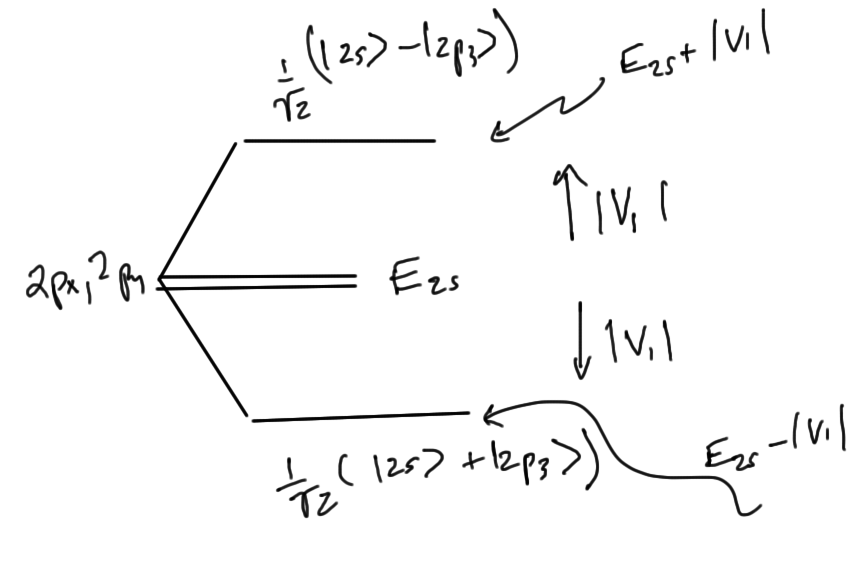 1/√2 (|2s⟩ - |2p₃⟩)
E₂ₛ + |V₁|
↑ |V₁|
2pₓ, 2pᵧ
E₂ₛ
↓ |V₁|
1/√2 (|2s⟩ + |2p₃⟩)
E₂ₛ - |V₁|